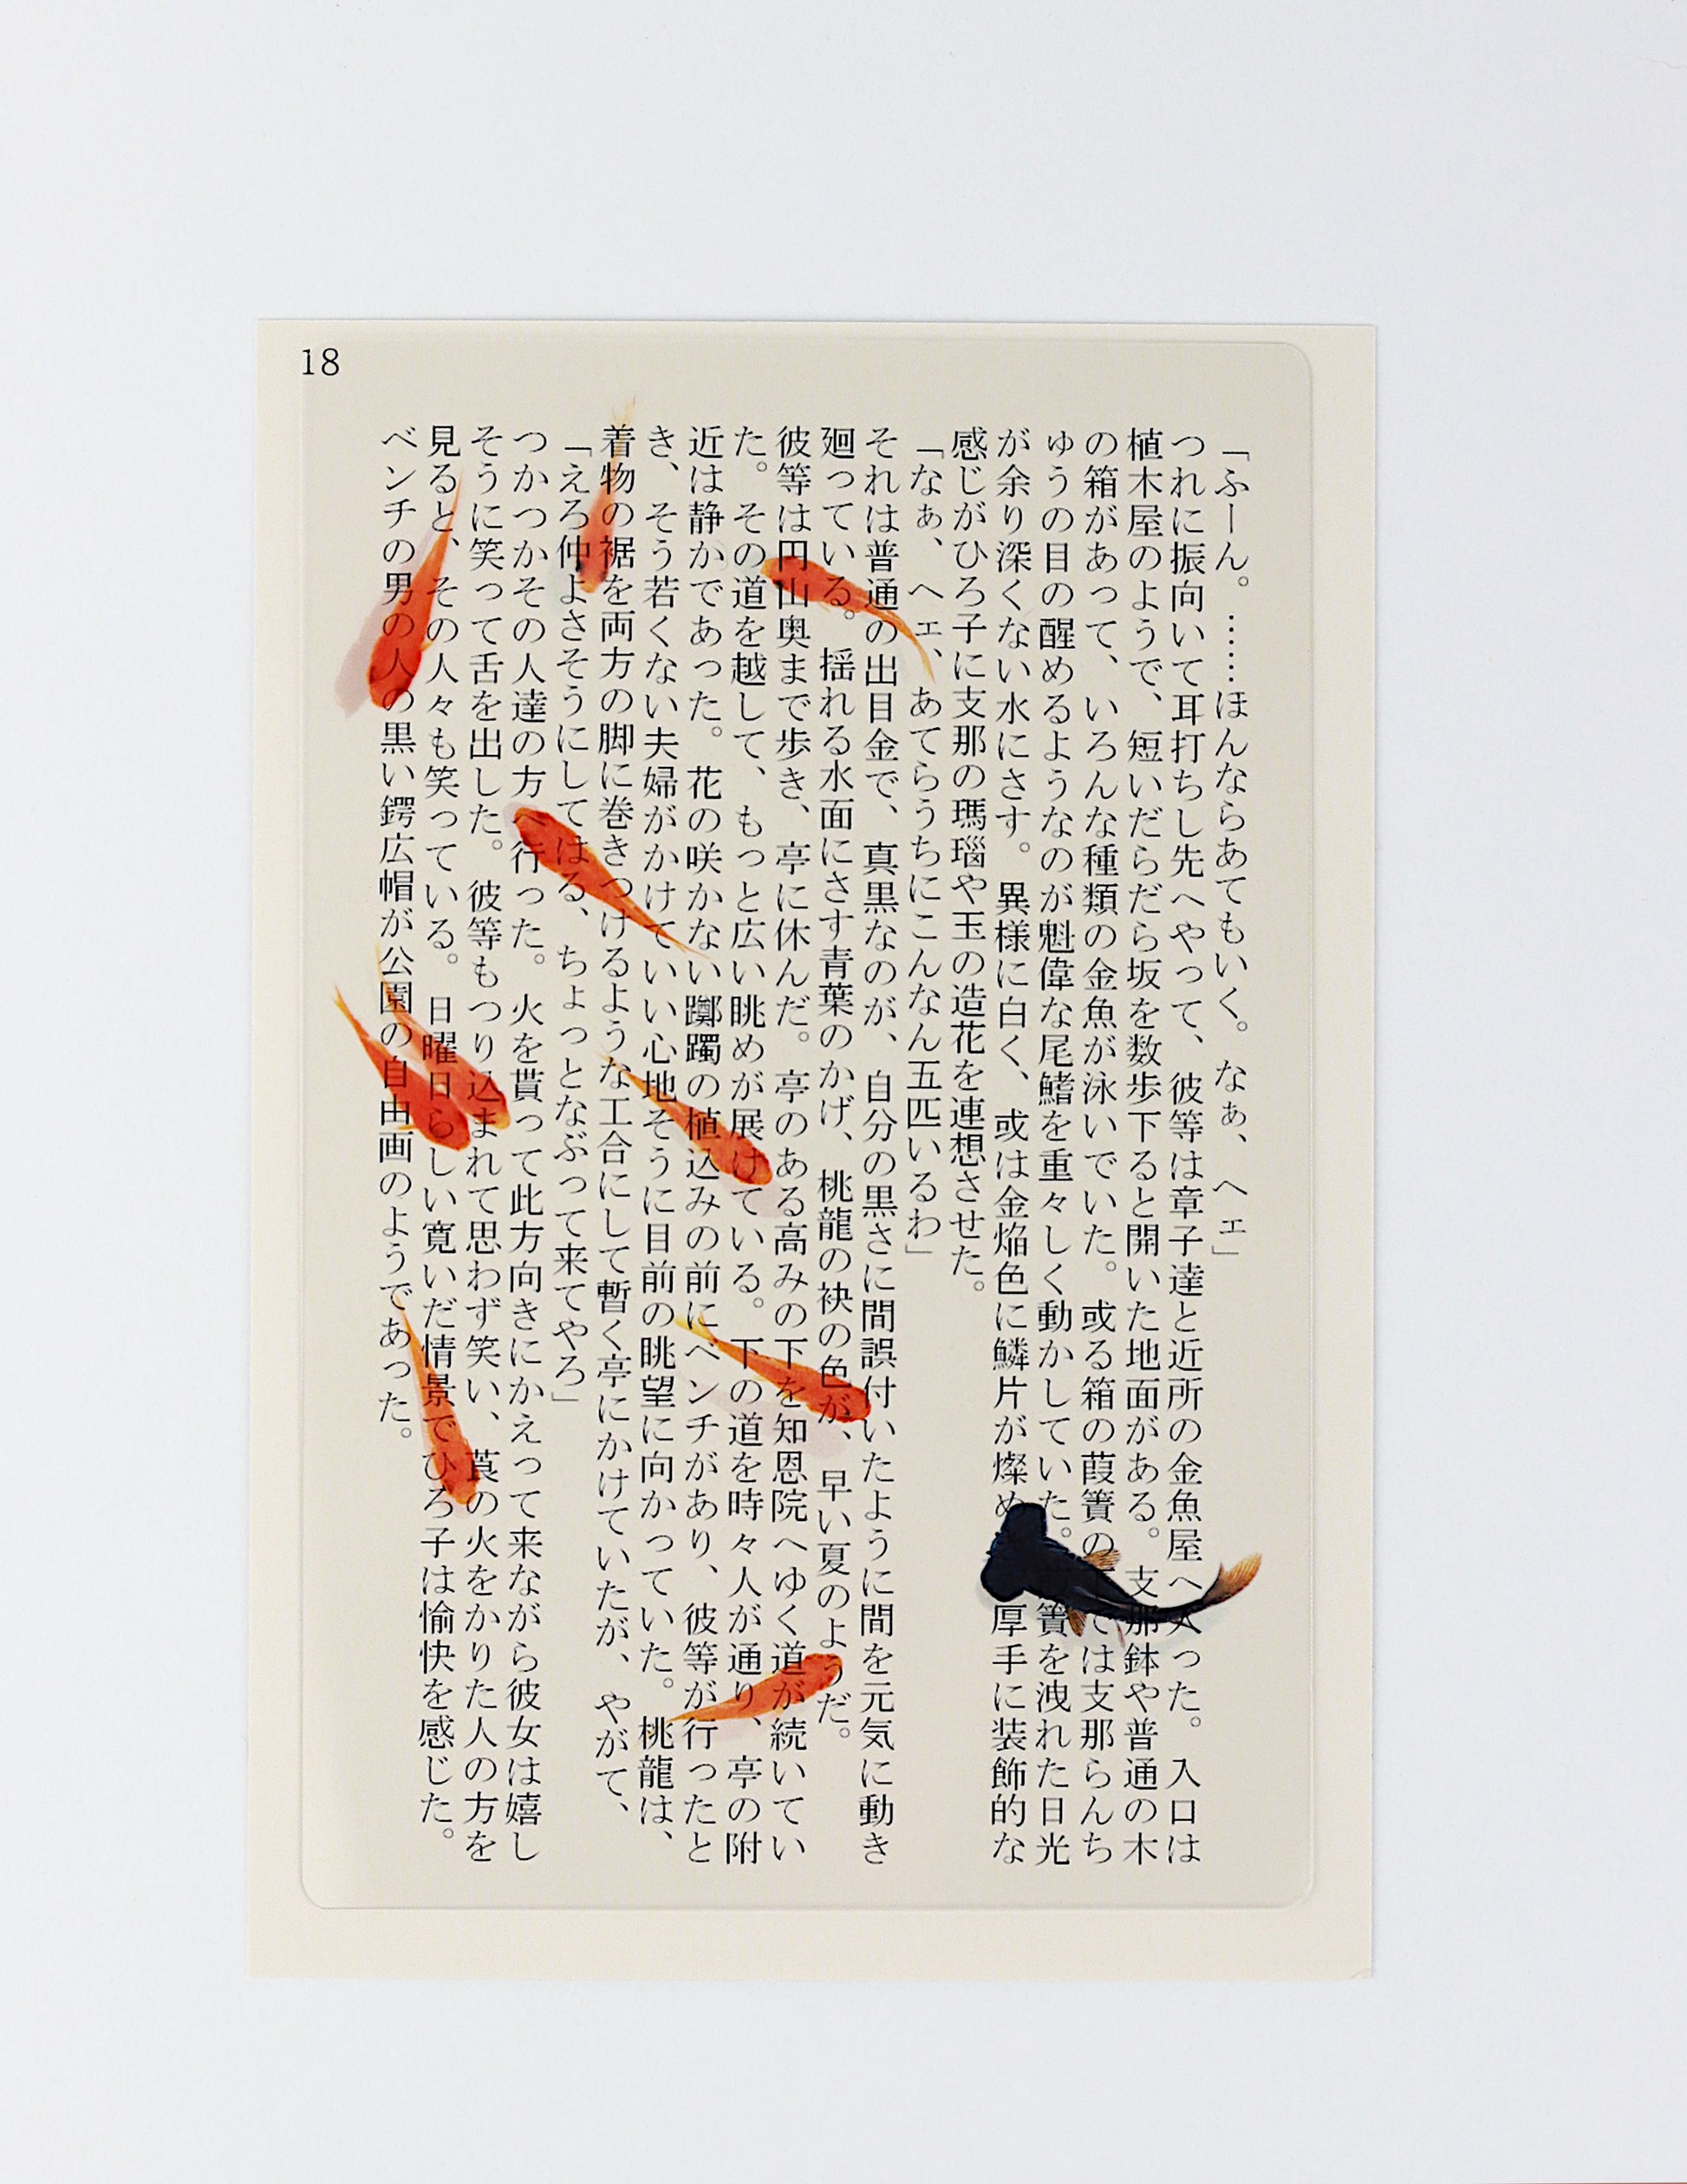 18
「ふーん。……ほんならあてもいく。なぁ、へェ」
つれに振向いて耳打ちし先へやって、彼等は章子達と近所の金魚屋へ入った。入口は
植木屋のようで、短いだらだら坂を数歩下ると開いた地面がある。支那鉢や普通の木
の箱があって、いろんな種類の金魚が泳いでいた。或る箱の葭簀の では支那らんち
ゅうの目の醒めるようなのが魁偉な尾鰭を重々しく動かしていた。 簀を洩れた日光
が余り深くない水にさす。異様に白く、或は金焔色に鱗片が燦め 厚手に装飾的な
感じがひろ子に支那の瑪瑙や玉の造花を連想させた。
「なぁ、へェ、あてらうちにこんなん五匹いるわ」
それは普通の出目金で、真黒なのが、自分の黒さに間誤付いたように間を元気に動き
廻っている。揺れる水面にさす青葉のかげ、桃龍の袂の色が、早い夏のようだ。
彼等は円山奥まで歩き、亭に休んだ。亭のある高みの下を知恩院へゆく道が続いてい
た。その道を越して、もっと広い眺めが展けている。下の道を時々人が通り、亭の附
近は静かであった。花の咲かない躑躅の植込みの前にベンチがあり、彼等が行ったと
き、そう若くない夫婦がかけていい心地そうに目前の眺望に向かっていた。桃龍は、
着物の裾を両方の脚に巻きつけるような工合にして暫く亭にかけていたが、やがて、
「えろ仲よさそうにしてはる、ちょっとなぶって来てやろ」
つかつかその人達の方へ行った。火を貰って此方向きにかえって来ながら彼女は嬉し
そうに笑って舌を出した。彼等もつり込まれて思わず笑い、莨の火をかりた人の方を
見ると、その人々も笑っている。日曜日らしい寛いだ情景でひろ子は愉快を感じた。
ベンチの男の人の黒い鍔広帽が公園の自由画のようであった。